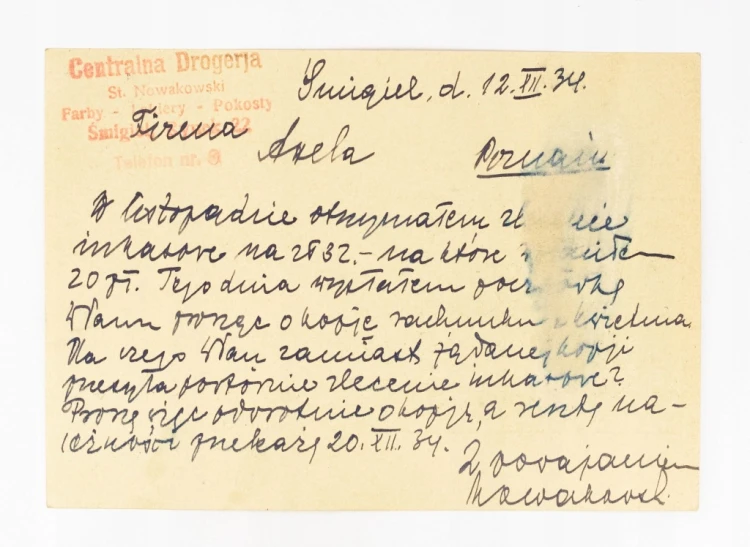 Centralna Drogerja
St. Nowakowski
Farby - Lakiery - Pokosty
Śmigiel, Rynek 22
Telefon nr.
Śmigiel, d. 12.XII.34.
Firma
Axela Poznań
W listopadzie otrzymałem zlecenie
inkasowe na zł 32.- na które
20 zł. Tego dnia wysłałem pocztówkę
Wam prosząc o kopję rachunku z kwietnia.
Dla czego Wan zamiast żądanej kopji
przesyła powtórnie zlecenie inkasowe?
Proszę więc odwrotnie o kopję, a resztę na-
leżności przekażę 20.XII.34.
Z poważaniem
Nowakowski